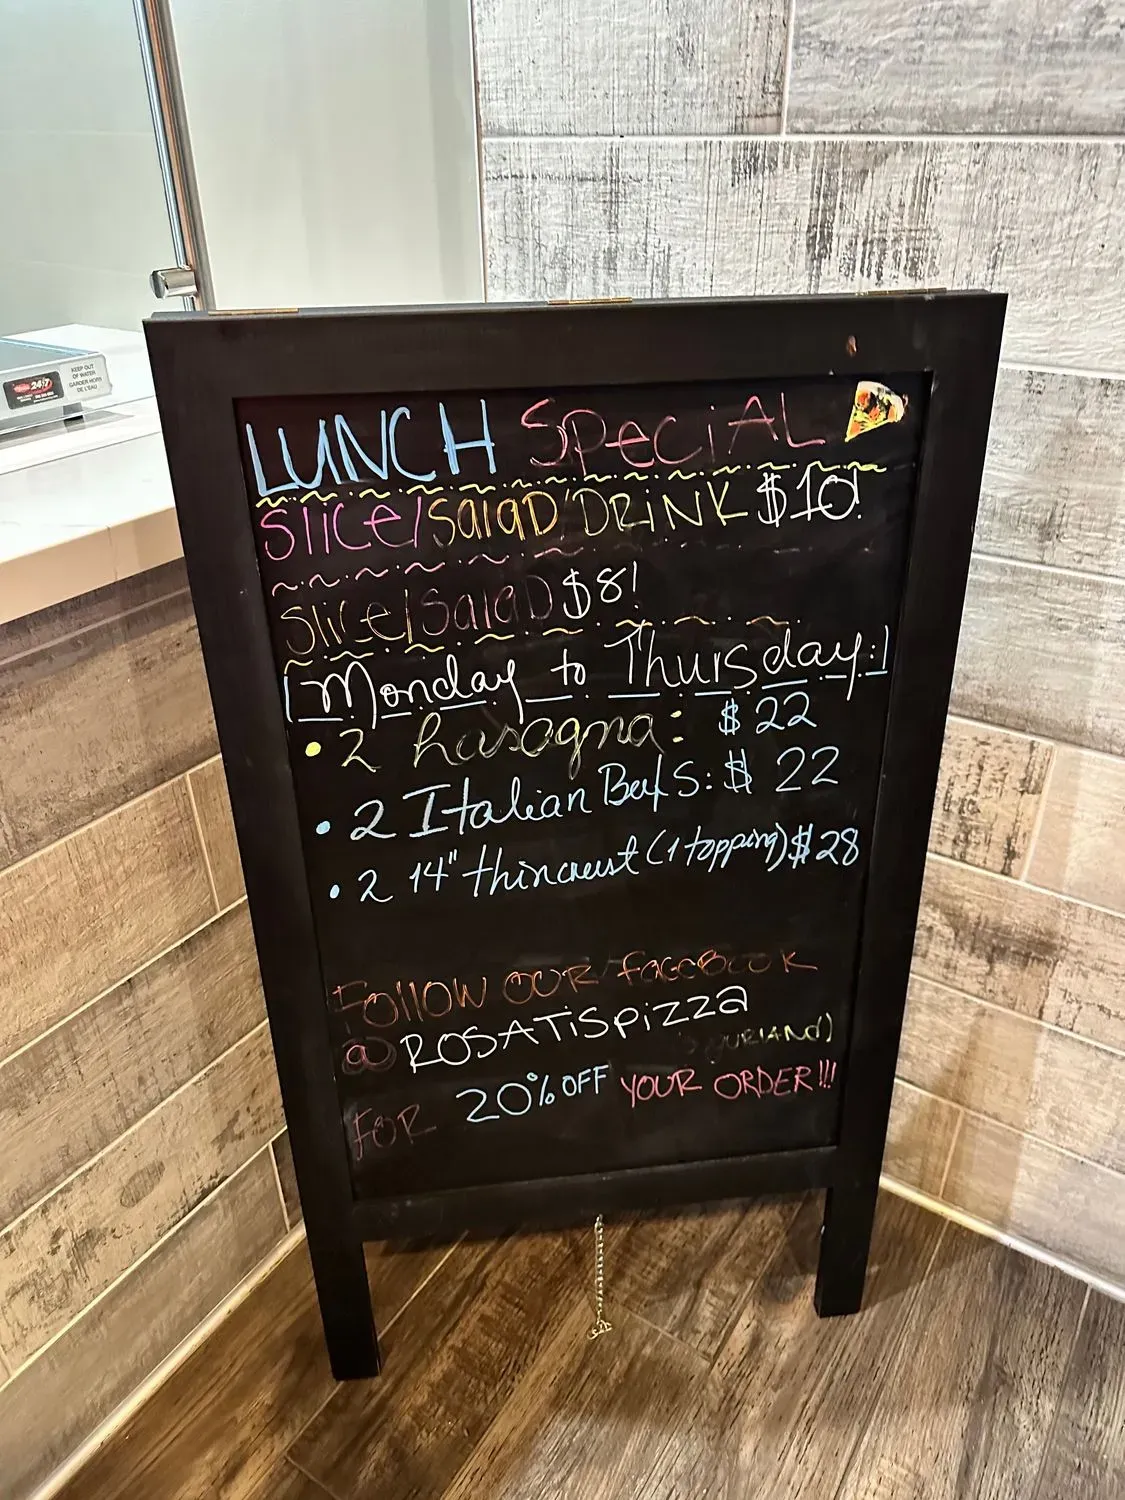 LUNCH SPeciAL
Slice/SalaD/DRiNK $10!
Slice/SalaD $8!
Monday to Thursday:
• 2 Lasagna: $22
• 2 Italian Beefs: $22
• 2 14" thincrust (1 topping) $28
FOllOW OUR FACEBOOK
@ROSATiSpizza
FOR 20% OFF YOUR ORDER!!!
24/7
KEEP OUT
OF WATER
GARDER HORS
DE L'EAU